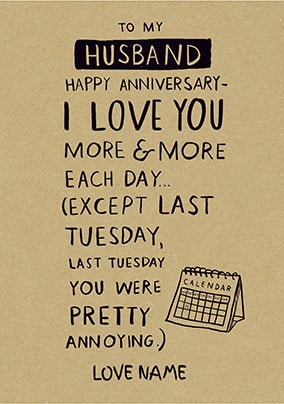 TO MY
HUSBAND
HAPPY ANNIVERSARY-
I LOVE YOU
MORE & MORE
EACH DAY...
(EXCEPT LAST
TUESDAY,
LAST TUESDAY
YOU WERE
PRETTY
ANNOYING.)
CALENDAR
LOVE NAME